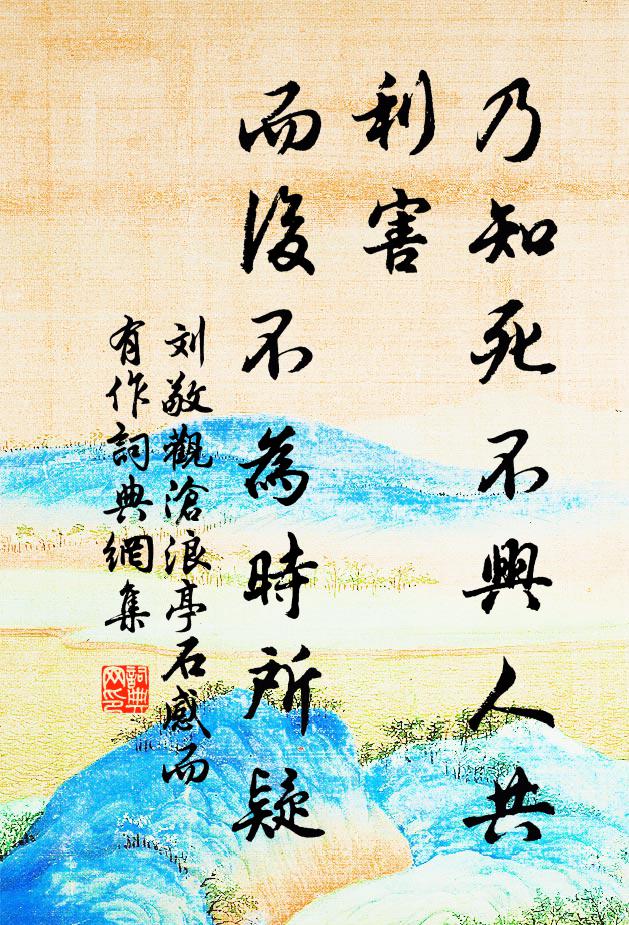 乃知死不興人共
利害
而後不為時所疑
刘敬觀滄浪亭石感而
有作詞典網集
詞典
网印